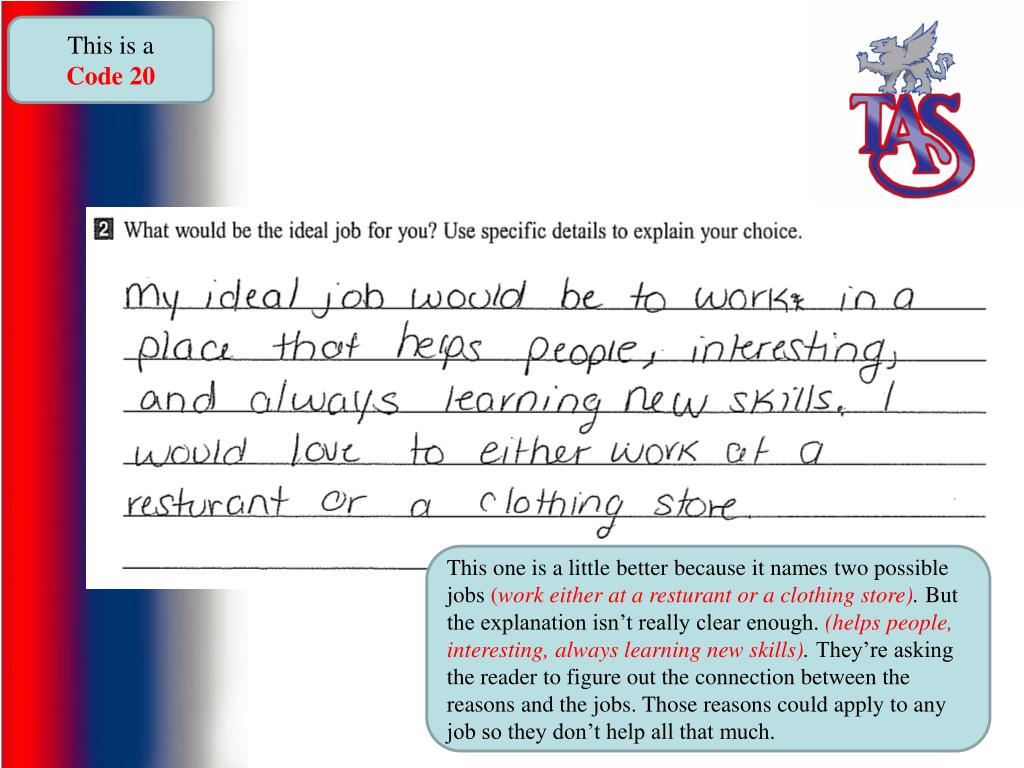 This is a
Code 20
TAS
2 What would be the ideal job for you? Use specific details to explain your choice.
My ideal job would be to work in a
place that helps people, interesting,
and always learning new skills. I
would love to either work at a
resturant or a clothing store.
This one is a little better because it names two possible
jobs (work either at a resturant or a clothing store). But
the explanation isn’t really clear enough. (helps people,
interesting, always learning new skills). They’re asking
the reader to figure out the connection between the
reasons and the jobs. Those reasons could apply to any
job so they don’t help all that much.